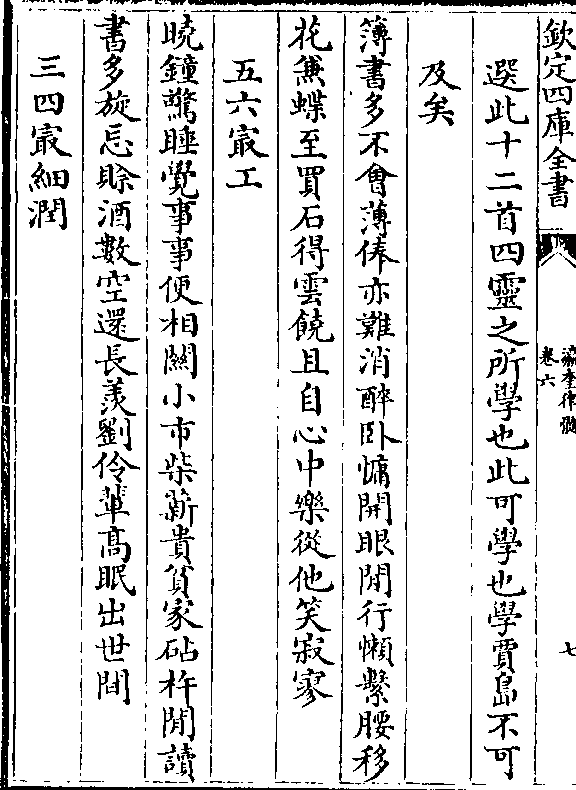 欽定四庫全書
瀛奎律髓
卷六
七
選此十二首四靈之所學也此可學也學賈島不可
及矣
簿書多不會薄俸亦難消醉卧慵開眼閒行懶繫腰移
花兼蝶至買石得雲饒且自心中樂從他笑寂寥
五六㝡工
曉鐘驚睡覺事事便相關小市柴薪貴貧家砧杵閒讀
書多旋忘賒酒數空還長羡劉伶輩高眠出世間
三四㝡細潤